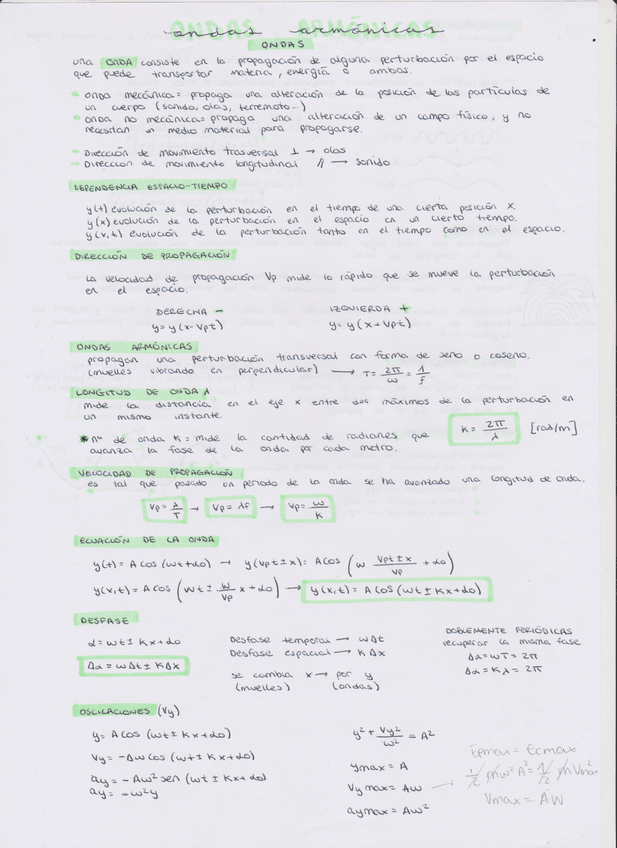 ondas armónicas
ONDAS
una ONDA consiste en la propagación de alguna perturbación por el espacio
que puede transportar materia, energía o ambas.
- onda mecánica= propaga una alteración de la posición de las partículas de
un cuerpo (sonido, olas, terremoto-)
- onda no mecánica= propaga una alteración de un campo físico, y no
necesitan un medio material para propagarse.
- Dirección de movimiento trasversal ⊥ → olas
- Dirección de movimiento longitudinal // → sonido
DEPENDENCIA ESPACIO-TIEMPO
y(t) evolución de la perturbación en el tiempo de una cierta posición x.
y(x) evolución de la perturbación en el espacio en un cierto tiempo.
y(x,t) evolución de la perturbación tanto en el tiempo como en el espacio.
DIRECCIÓN DE PROPAGACIÓN
La velocidad de propagación Vp mide lo rápido que se mueve la perturbación
en el espacio.
DERECHA - IZQUIERDA +
y= y(x-Vpt) y= y(x+Vpt)
ONDAS ARMÓNICAS
propagan una perturbación transversal con forma de seno o coseno.
(muelles vibrando en perpendicular) → T= 2π/ω = 1/f
LONGITUD DE ONDA λ
mide la distancia en el eje x entre dos máximos de la perturbación en
un mismo instante.
*nº de onda K= mide la cantidad de radianes que
avanza la fase de la onda por cada metro. K= 2π/λ [rad/m]
VELOCIDAD DE PROPAGACIÓN
es tal que pasado un periodo de la onda se ha avanzado una longitud de onda.
Vp= λ/T → Vp= λf → Vp= ω/K
ECUACIÓN DE LA ONDA
y(t)= A cos (ωt+αo) → y(Vpt±x)= A cos (ω Vpt±x/Vp + αo)
y(x,t)= A cos (ωt ± ω/Vp x + αo) → y(x,t)= A cos (ωt ± Kx+αo)
DESFASE
α= ωt ± Kx+αo
Δα= ωΔt ± KΔx
Desfase temporal → ωΔt
Desfase espacial → KΔx
se cambia x → por y
(muelles) (ondas)
DOBLEMENTE PERIÓDICAS
recuperar la misma fase
Δα= ωT = 2π
Δα= Kλ = 2π
OSCILACIONES (Vy)
y= A cos (ωt ± Kx+αo)
Vy= -Aω cos (ωt ± Kx+αo)
ay= -Aω² sen (ωt ± Kx+αo)
ay= -ω²y
y² + Vy²/ω² = A²
ymax= A
Vymax= Aω
aymax= Aω²
Epmax = Ecmax
1/2 mω²A² = 1/2 mVmax²
Vmax = Aω